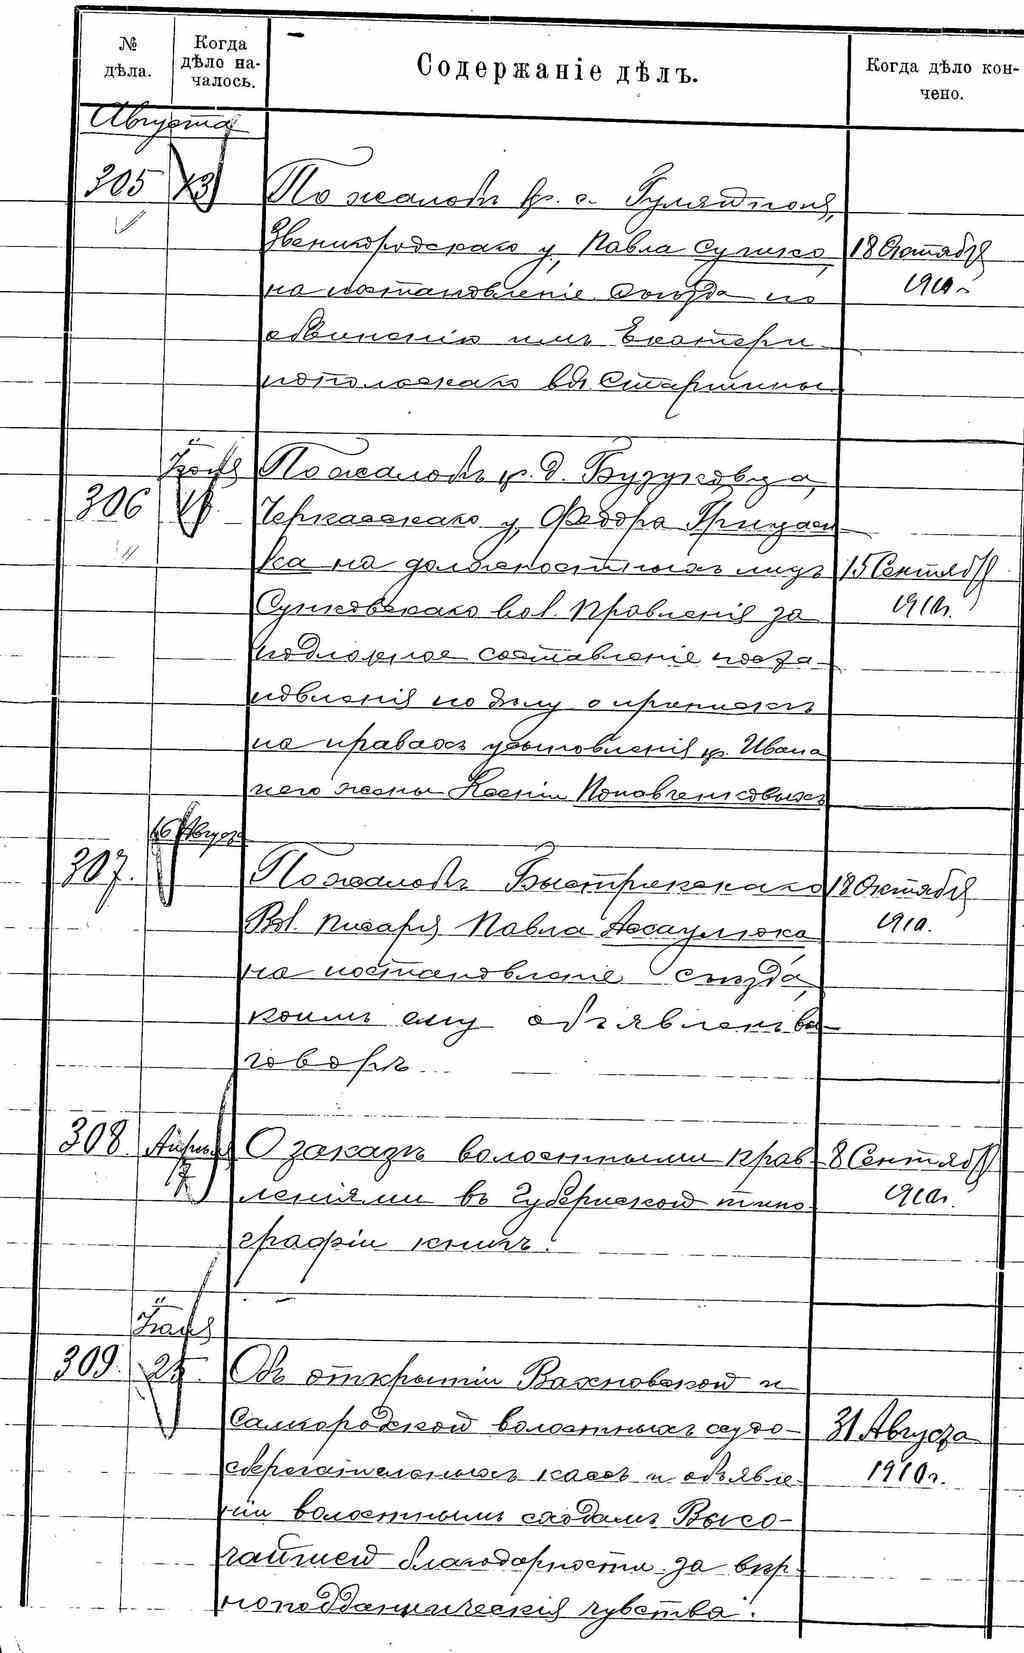 № дѣла.
Когда дѣло на-
чалось.
Содержаніе дѣлъ.
Когда дѣло кон-
чено.
Августа
305
13
По жалобѣ кр. с. Гуляйполя,
Звенигородскаго у, Павла Сушко,
на постановленіе Съѣзда по
обвиненію имъ Екатери-
нопольскаго вол Старшины
18 Октября
1910 г.
Іюля
306
По жалобѣ кр. д. Бузуковца,
Черкасскаго у, Федора Грицен-
ка на должностныхъ лицъ
Сунковскаго вол. Правленія за
подложное составленіе поста-
новленія по дѣлу о припискѣ
на правахъ усыновленія кр. Ивана
и его жены Ксеніи
15 Сентября
1910г.
16 Августа
307.
По жалобѣ Быстрикскаго
Вол. Писаря Павла Ассаулюка
на постановленіе съѣзда,
коимъ ему объявленъ вы-
говоръ
18 Октября
1910.
308.
Апрѣля
7
О заказѣ волостными прав-
леніями въ Губернской типо-
графіи книгъ.
8 Сентября
1910г.
Іюля
309.
25.
Объ открытіи Вахновской и
Самгородской волостныхъ судо-
сберегательныхъ кассъ и объявле-
ніи волостнымъ сходамъ Высо-
чайшей благодарности за вѣр-
ноподданническія чувства.
31 Августа
1910г.